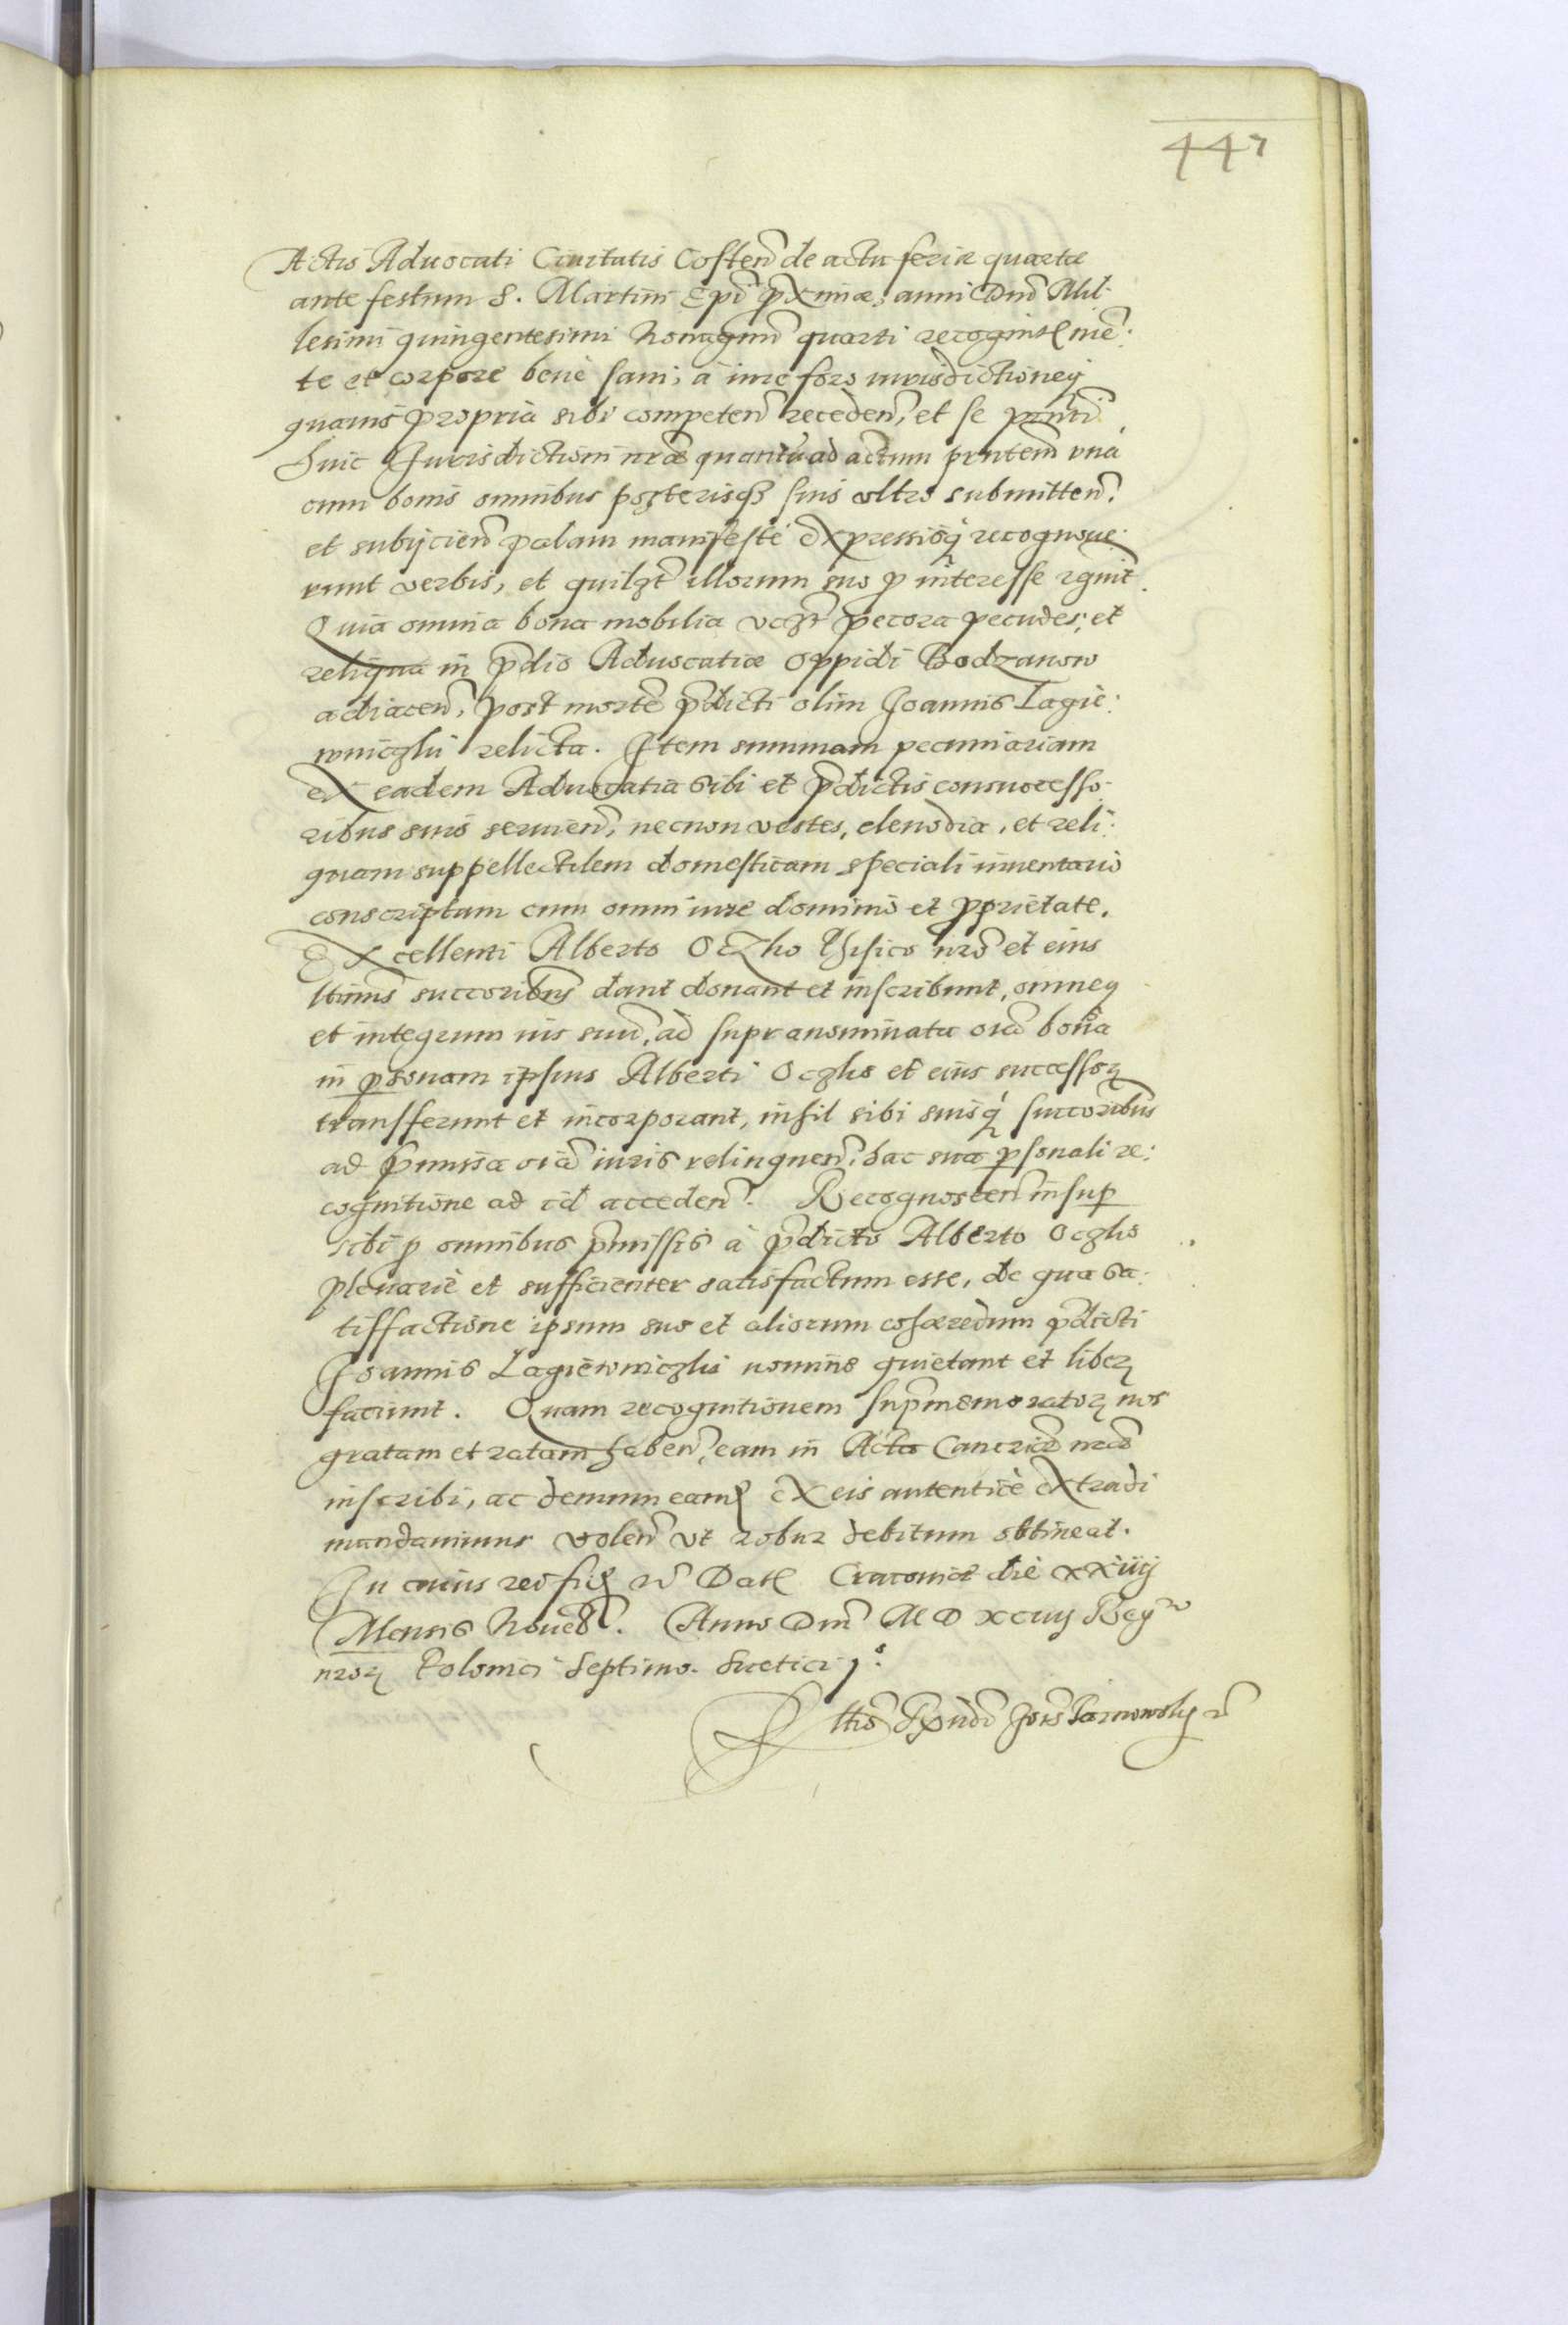 447
Actis Advocati Civitatis Costen̄ de actu feriæ quartæ
ante festum S. Martini Ep̄i p̄xīmæ, anni Dn̄i Mil-
lesimi quingentesimi Nonagmī quarti recognit mē:
te et corpore benè sani, à iure foro iurisdictioneq
quavis propria sibi competen̄ receden̄, et se pn̄ti
huic Jurisdictioni nr̄æ quantū ad actum pn̄tem unà
cum bonis omnibus posterisq3 suis ultro submitten̄,
et subijcien̄ palam manifeste expressisq́ recognoue-
runt verbis, et quilzt illorum suo p interesse rgnit.
Quia omnia bona mobilia vczt pecora pecudes, et
reliqua in p̄dio Advocatiæ oppidi Bodzanow
adiacen̄, post mortē p̄dicti olim Joannis Lagie:
wniczhi relicta. Item summam pecuniariam
ex eadem Advocatia sibi et p̄dictis consuccesso-
ribus suis seruien̄, necnon vestes, clenodia, et reli:
quam suppellectilem domesticam speciali inuentario
conscriptam cum omni iure dominio et pprietate.
Excellenti Alberto Oczho Phisico nr̄o et eius
ltimis succoribus dant donant et inscribunt, omneq
et integrum ius suū, ad supranominata oīa bona
in psonam ipsius Alberti Oczho et eius successorꝫ
transferunt et incorporant, nihil sibi suisq́ succoribus
ad p̄missa oīa iuris relinquen̄, hac sua psonali re:
cognitione ad id acceden̄. Recognoscen̄ insup
sibi p omnibus p̄missis à p̄dicto Alberto Oczho
plenariè et sufficienter satisfactum esse, de qua sa:
tisfactione ipsum suo et aliorum cohæredum p̄dicti
Joannis Lagiewniczhi nomine quietant et liberꝫ
faciunt. Quam recognitionem sup̄memoratorꝫ nos
gratam et ratam haben̄, eam in Acta Canc̄riæ nr̄æ
inscribi, ac demum eamq ex eis autenticè extradi
mandauimus volen̄ vt robur debitum obtineat.
In cuius rei fiꝫ rc̄ Dat Cracouiæ die xxiiij
Mensis Noueb̄. Anno Dnī M D XCIIIJ Regr
nrorꝫ Poloniæ Septimo. Suetiæ 1º.
Joēs Tarnowsky